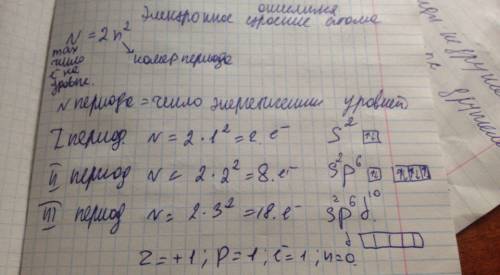 Электронное строение атома
N = 2n²
max число ē на уровне.
номер периода
N периода = число энергетических уровней
I период N = 2·1² = 2ē S² ↑↓
II период N = 2·2² = 8ē S²p⁶ ↑↓ ↑↓ ↑↓ ↑↓
III период N = 2·3² = 18ē S²p⁶d¹⁰
d
Z = +1; P = 1; ē = 1; n = 0.